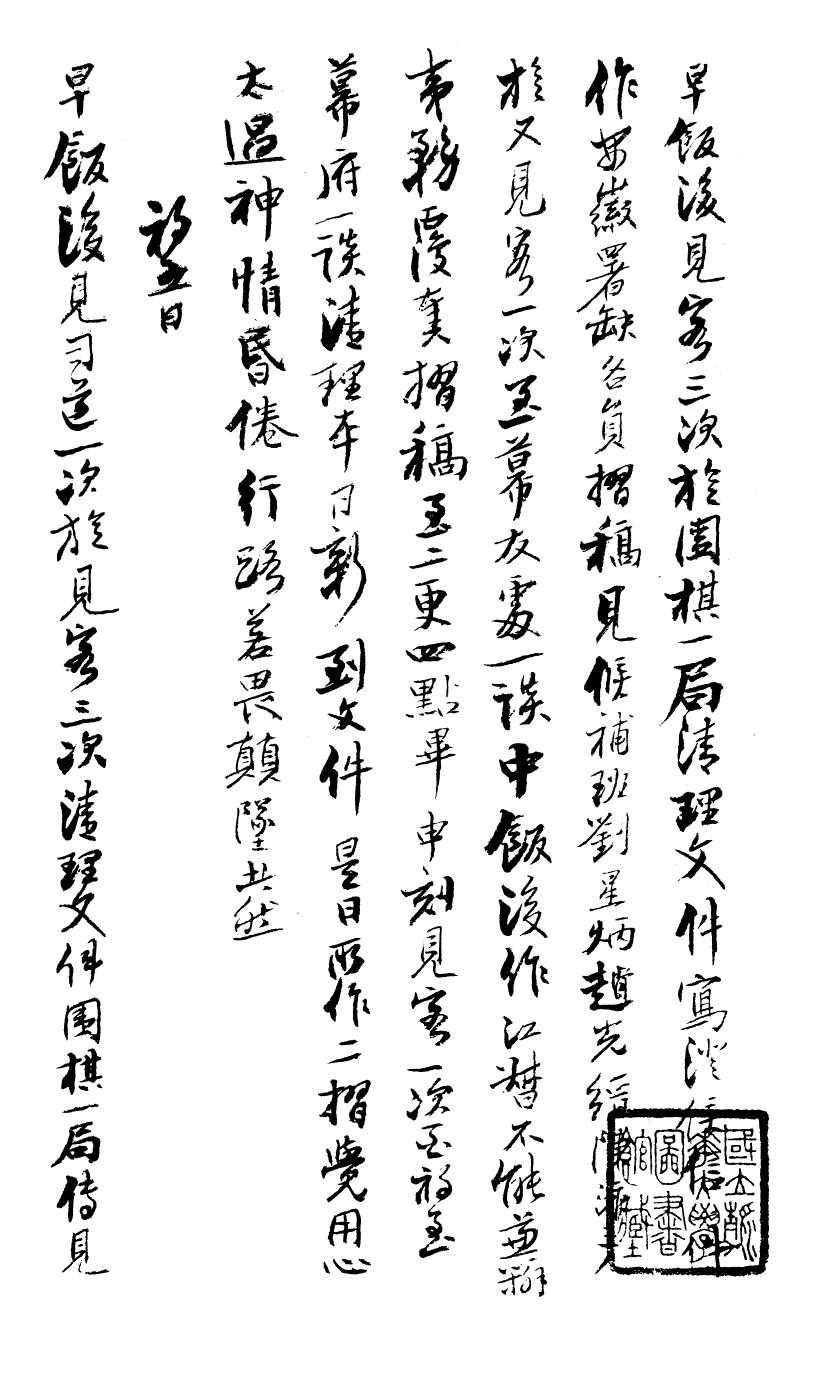 早飯後見客三次旋圍棋一局清理文件寫澄信
作安徽署缺各員摺稿見候補班劉星炳趙光縉
旋又見客一次至幕友處一談中飯後作江督不能兼辦
夷務覆奏摺稿至二更四點畢申刻見客一次酉初至
幕府一談清理本日新到文件是日所作二摺覺用心
太過神情昏倦行路若畏顛墜者然
初五日
早飯後見司道一次旋見客三次清理文件圍棋一局傳見